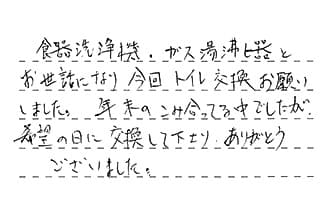 食器洗浄機、ガス湯沸器と
お世話になり今回トイレ交換お願い
しました。年末のこみ合ってる中でしたが、
希望の日に交換して下さり、ありがとう
ございました。